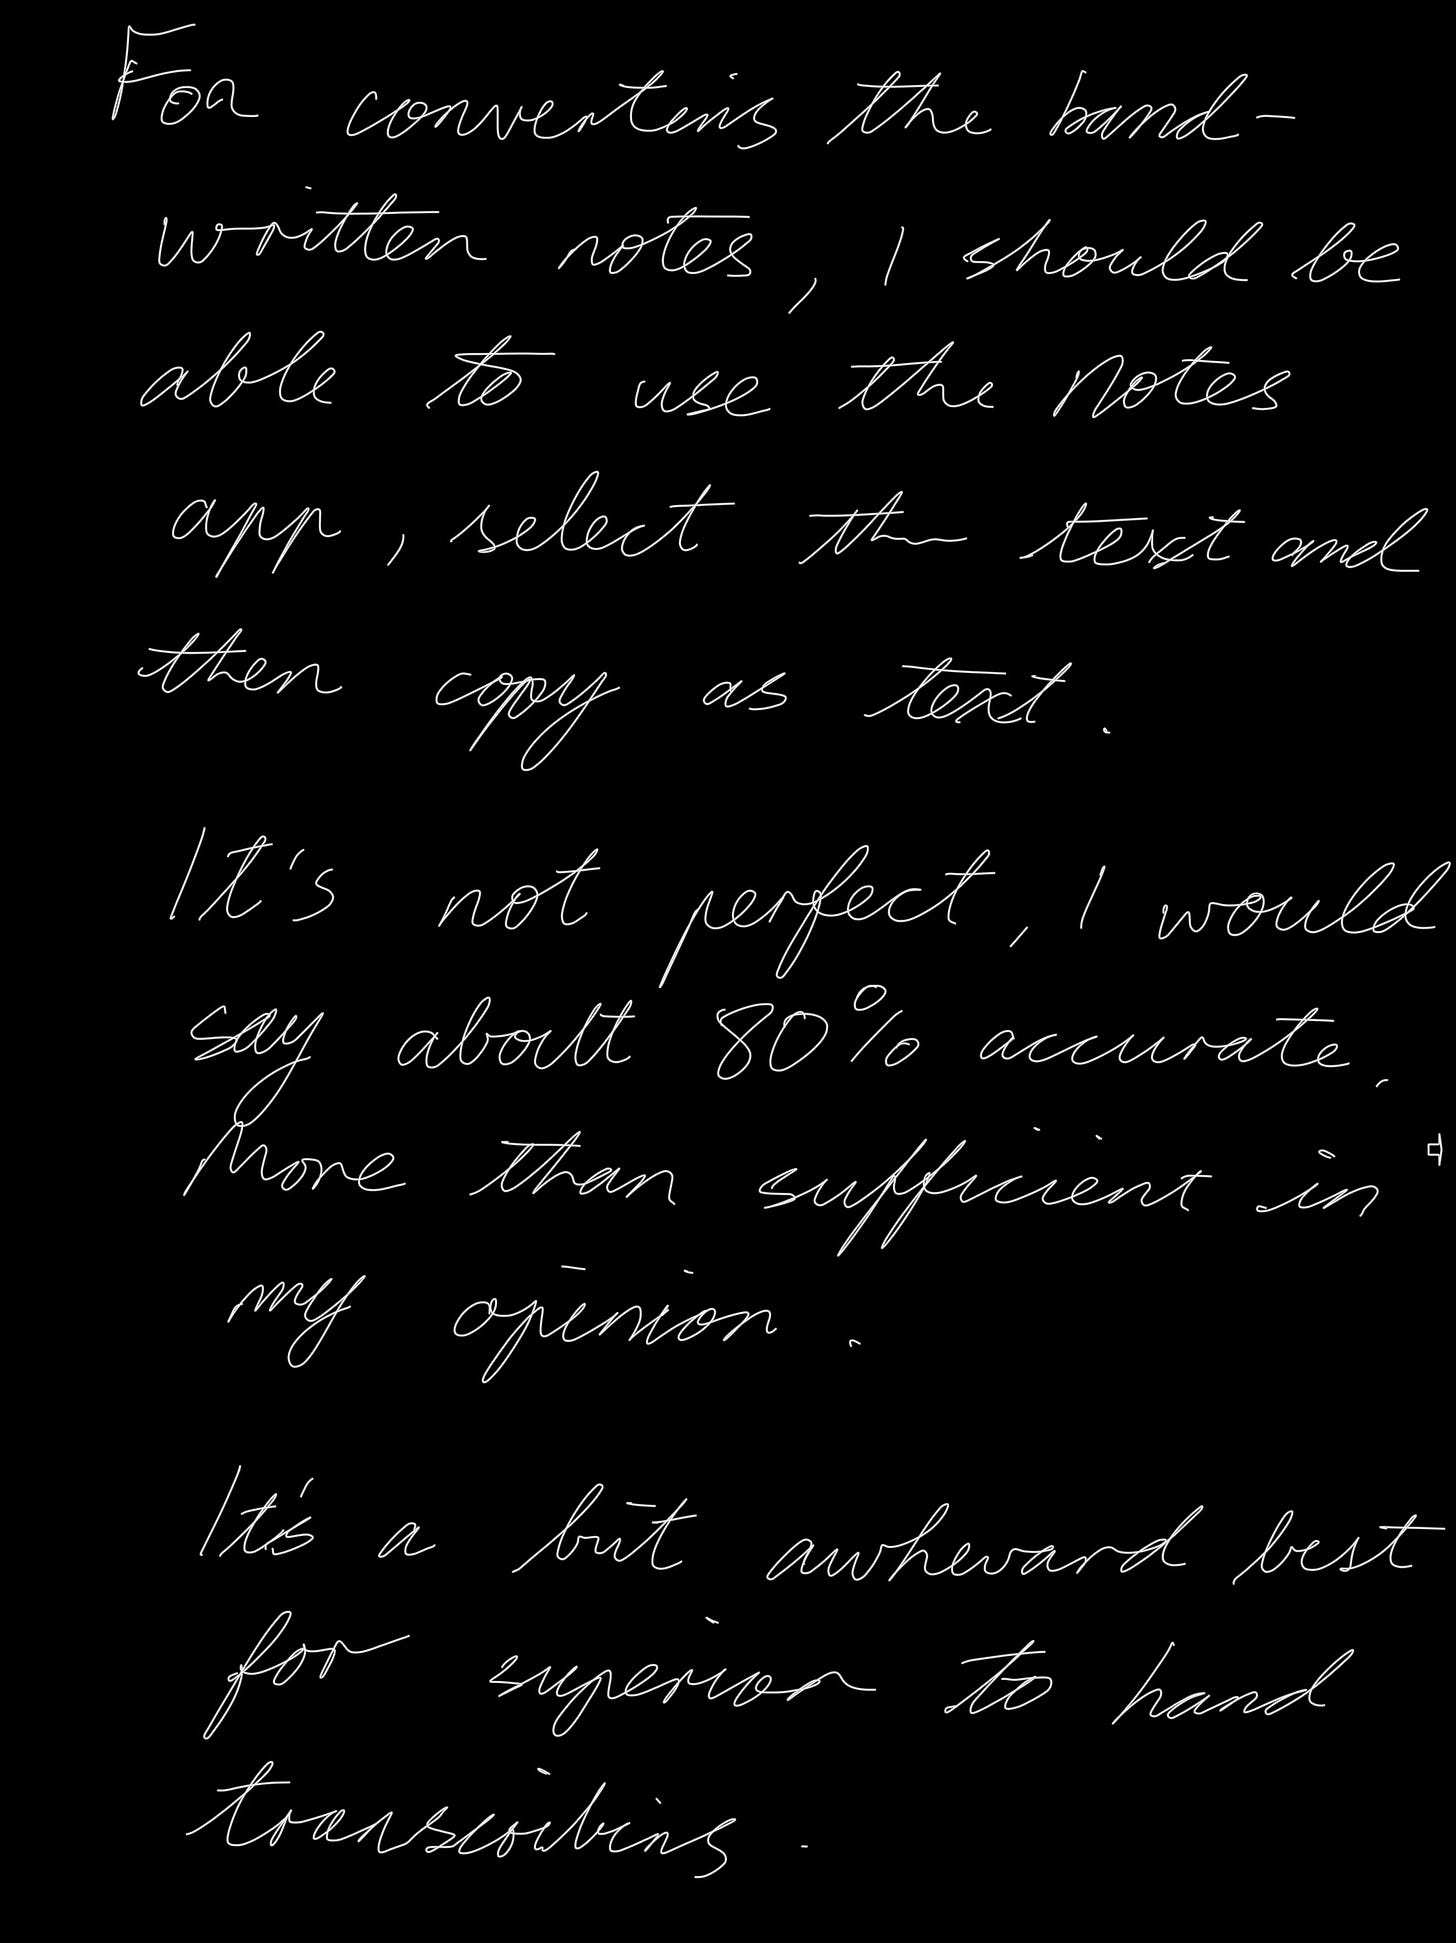 For converting the hand-
written notes, I should be
able to use the Notes
app, select the text and
then copy as text.
It's not perfect, I would
say about 80% accurate.
More than sufficient in
my opinion.
It's a bit awkward best
for superior to hand
transcribing.